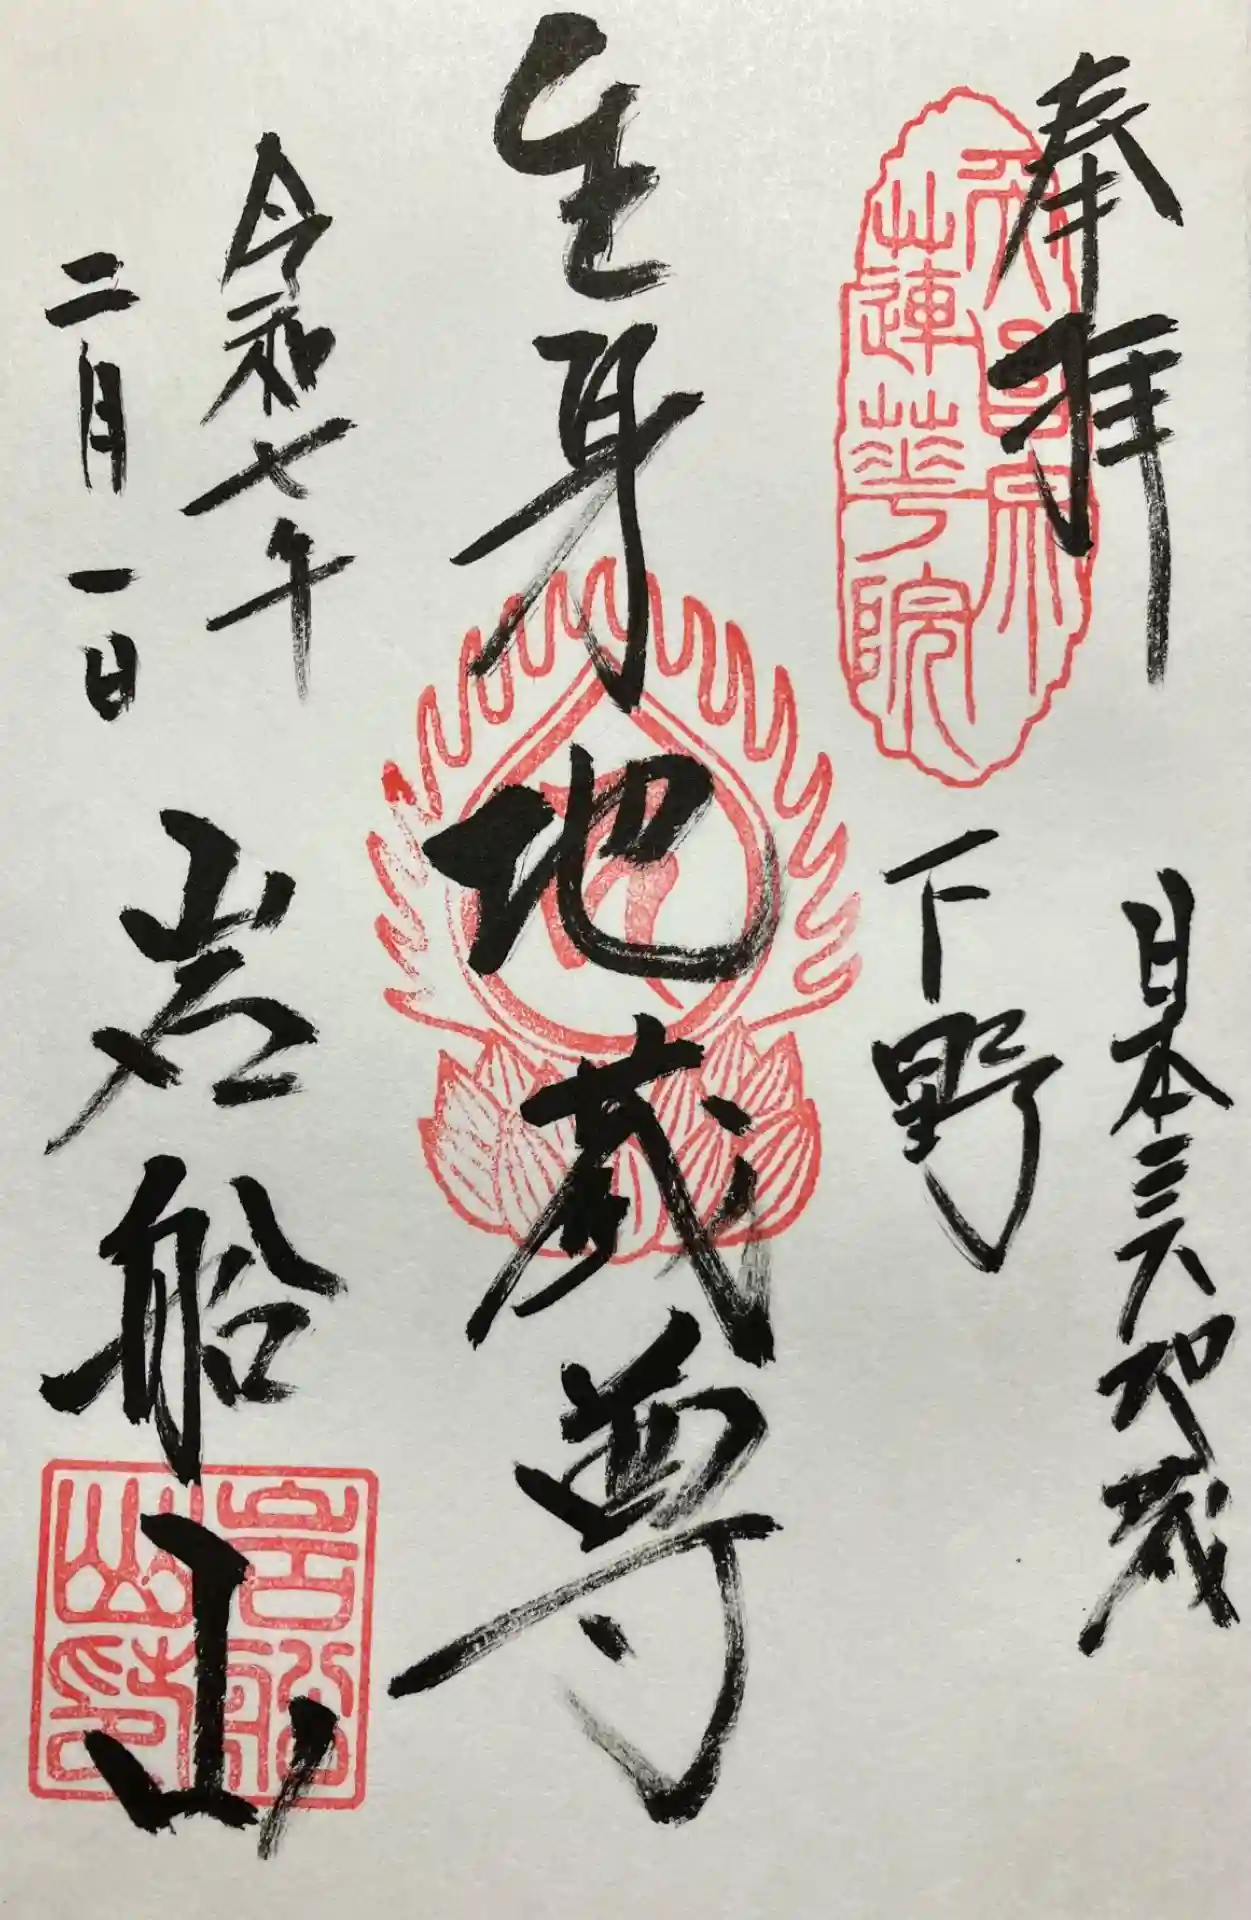 奉拝
日本三大地蔵
下野
蓮華院
生身地蔵尊
令和七年
二月一日
岩船山
岩舩山印